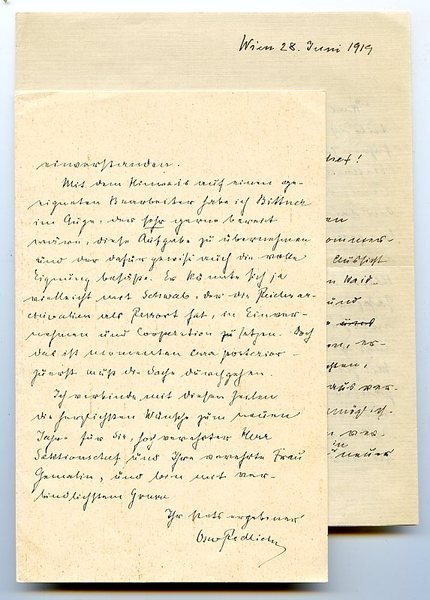 Wien 28. Juni 1919
einverstanden.
Mit dem Hinweis auf einen ge-
eigneten Bearbeiter habe ich Bittner
im Auge, der sehr gerne bereit
wäre, diese Aufgabe zu übernehmen
und der dafür gewiß auch die volle
Eignung besäße. Er könnte sich ja
vielleicht mit Schwab, der die Reichsar-
als Referat hat, in Einver-
nehmen und Cooperation zu setzen. Doch
das ist momentan cura posterior
zuerst muß die Sache durchgehen.
Ich verbinde mit diesen Zeilen
die herzlichsten Wünsche zum neuen
Jahre für Sie, hoch verehrter Herr
Sektionschef und Ihre verehrte Frau
Gemalin, und bin mit ver-
bindlichstem Gruss
Ihr stets ergebener
Osw. Redlich
ommer-
Aussicht
und
en, er-
aus ver-
ver-
in
neuer